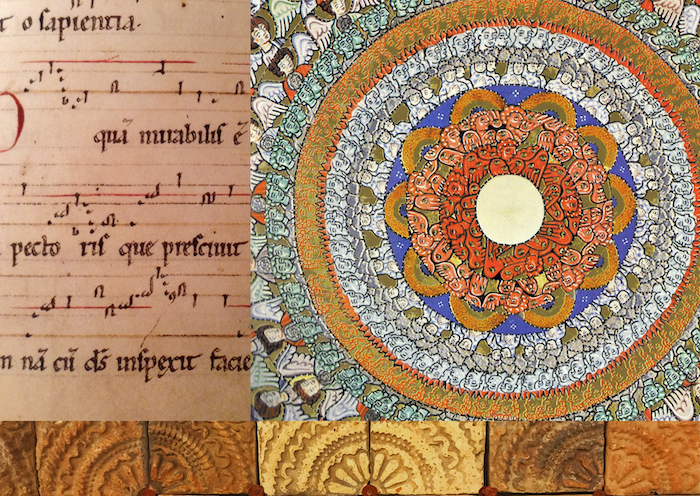 t o sapientia.
quā mirabilis ē
pecto ris que presciuit
m nā cū ds̄ inspexit facie